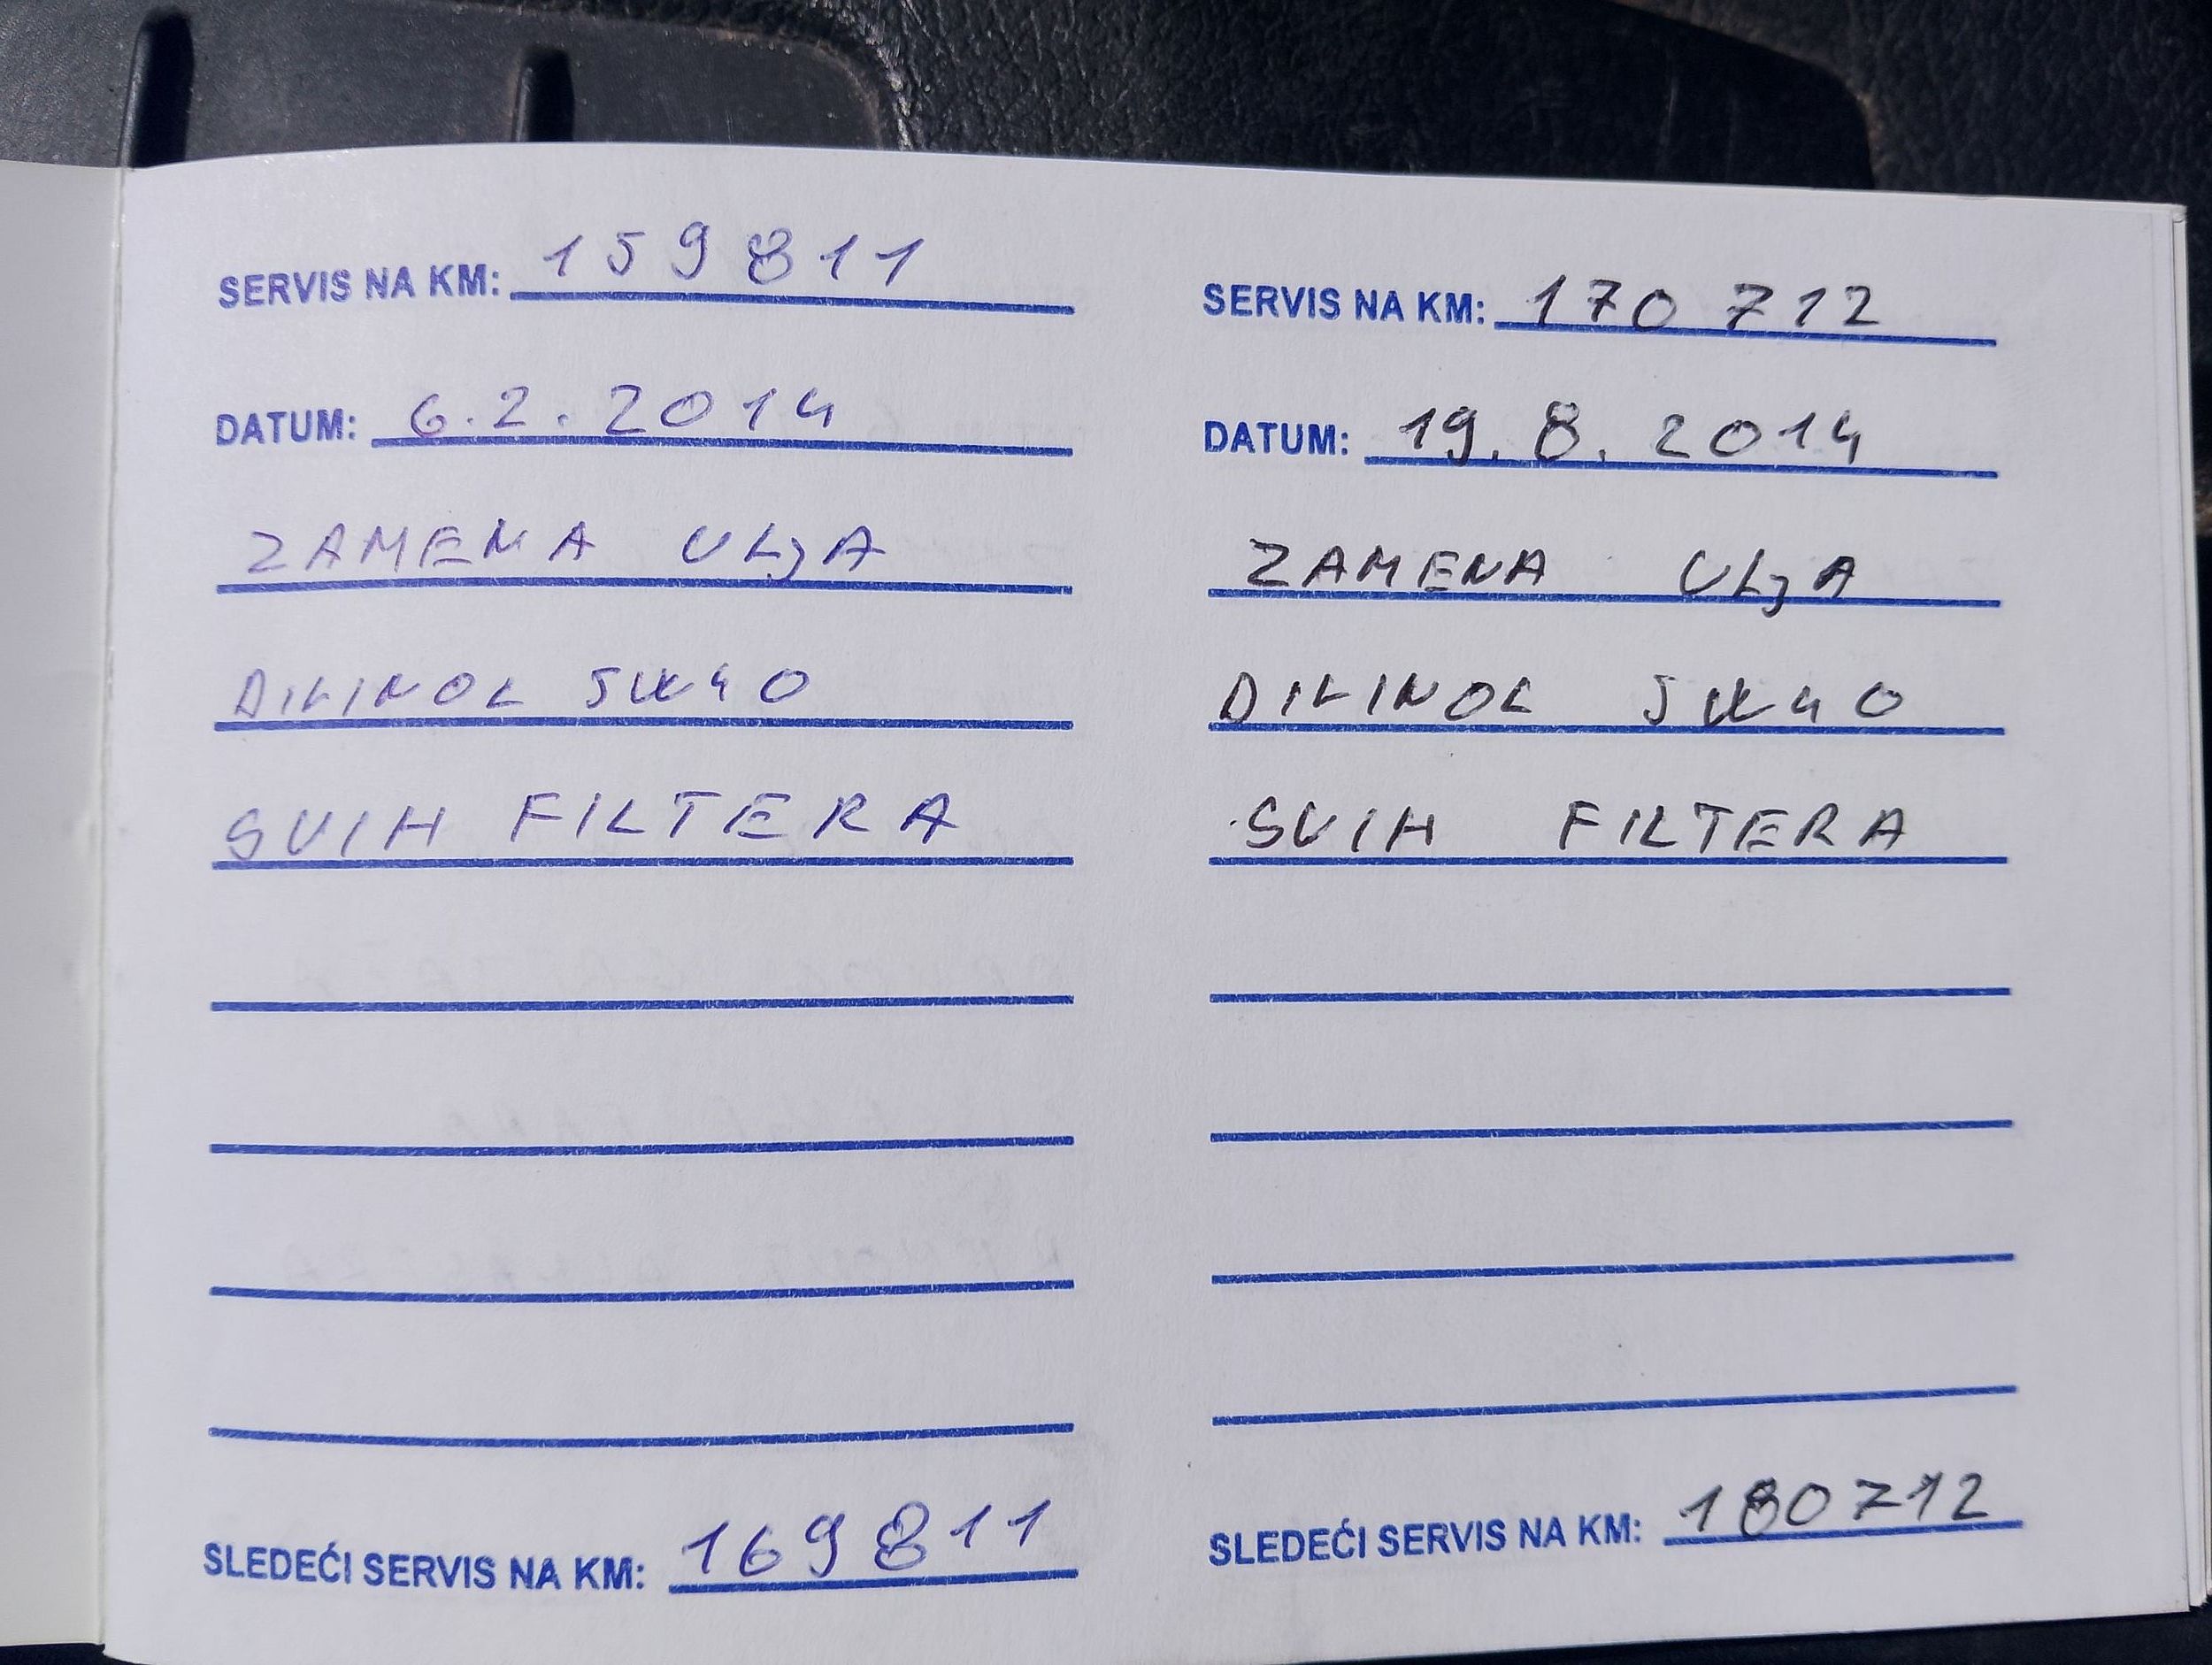 SERVIS NA KM: 159811
DATUM: 6.2.2014
ZAMENA ULJA
DIVINOL 5W40
SVIH FILTERA
SLEDEĆI SERVIS NA KM: 169811
SERVIS NA KM: 170712
DATUM: 19.8.2014
ZAMENA ULJA
DIVINOL 5W40
SVIH FILTERA
SLEDEĆI SERVIS NA KM: 180712